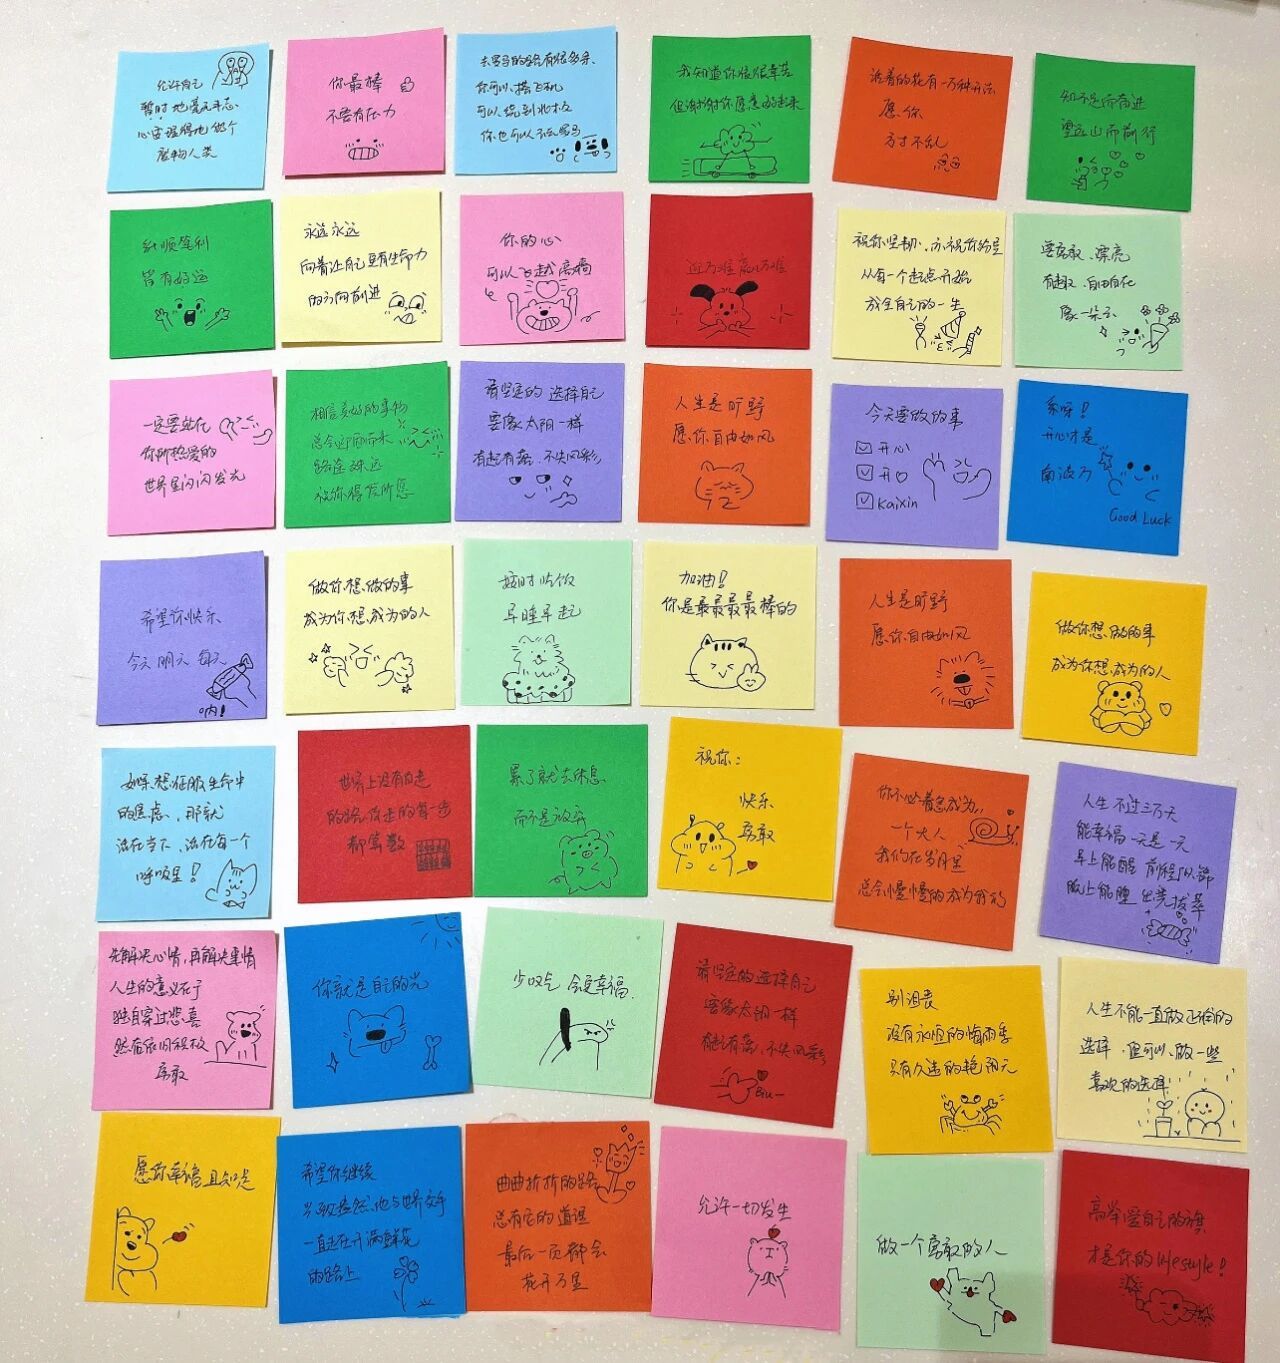 允许自己
暂时地毫无斗志
心安理得地做个
废物人类
你最棒
不要有压力
去罗马的路有很多条
你可以搭飞机
可以绕到北极
你也可以不去罗马
我知道你很辛苦
但谢谢你愿意
活着的花有一万种开法
愿你
方寸不乱
知不足而奋进
望远山而前行
纸顺笔利
皆有好运
永远永远
向着让自己更有生命力
的方向前进
你的心
可以飞越高墙
逢万难 赢万难
祝你坚韧、亦祝你
从每一个起点开始
成全自己的一生
要勇敢、漂亮
有趣、自由自在
像一朵云
一定要站在
你所热爱的
世界里闪闪发光
相信美好的事物
总会迎面而来
路途遥远
祝你得偿所愿
请坚定的选择自己
要像太阳一样
有起有落、不失风彩
人生是旷野
愿你自由如风
今天要做的事
开心
开♡
kaixin
系呀！
开心才是
南波万
Good Luck
希望你快乐
今天 明天 每天
呐！
做你想做的事
成为你想成为的人
按时吃饭
早睡早起
加油！
你是最最最最棒的
人生是旷野
愿你自由如风
做你想做的事
成为你想成为的人
如果想征服生命中
的焦虑、那就
活在当下、活在每一个
呼吸里！
世界上没有白走
的路、你走的每一步
都算数
累了就去休息
而不是放弃
祝你：
快乐
勇敢
你不必着急成为
一个大人
我们在岁月里
总会慢慢的成为我们
人生不过三万天
能幸福一天是一天
早上能醒 前程似锦
晚上能睡 出类拔萃
先解决心情，再解决事情
人生的意义在于
独自穿过悲喜
然后依旧积极
勇敢
你就是自己的光
少叹气 会更幸福
请坚定的选择自己
要像太阳一样
有起有落、不失风彩
Biu—
别沮丧
没有永恒的梅雨季
只有久违的艳阳天
人生不能一直做正确的
选择、但可以做一些
喜欢的选择
愿你幸福且知足
希望你继续
兴致盎然地与世界交手
一直走在开满鲜花
的路上
曲曲折折的路
总有它的道理
最后一页都会
花开万里
允许一切发生
做一个勇敢的人
高举爱自己的旗
才是你的lifestyle！